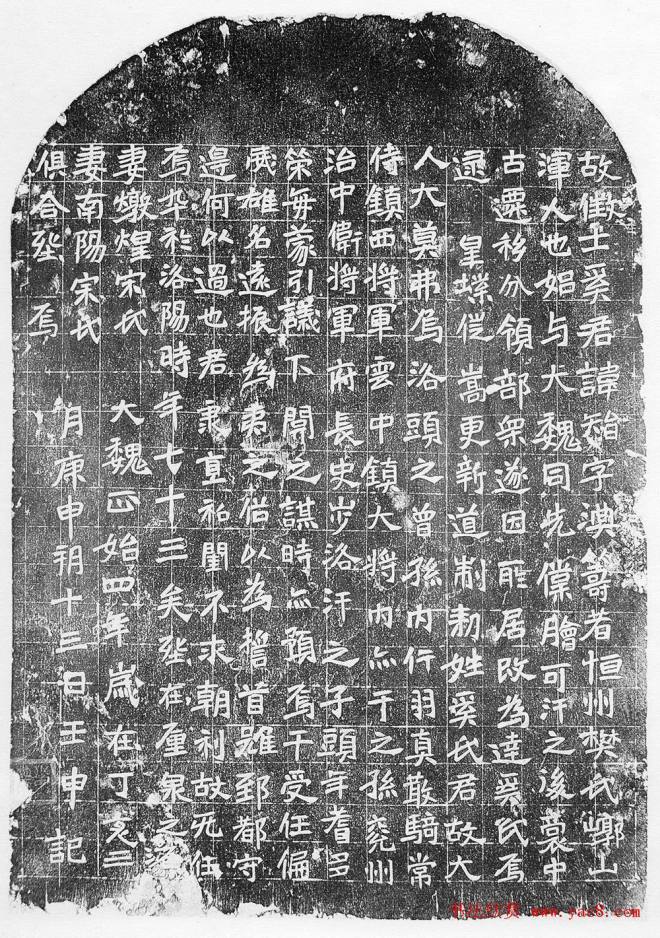 故徵士奚君諱智字淟籌者恒州樊氏崞山
渾人也始与大魏同先僕膾可汗之後裔中
古遷移分領部衆遂因所居改為達奚氏焉
逮 皇業徙嵩更新道制勑姓奚氏君故大
人大莫弗烏洛頭之曾孫内行羽真散騎常
侍鎮西将軍雲中鎮大将内亦干之孫兖州
治中衛将軍府長史步洛汗之子頭年耆多
策每蒙引議下關之謀時亦預焉干受任偏
威雄名遠振為夷之俗以為誓首雖郅都守
邊何以過也君秉直私閨不求朝利故无任
焉卒於洛陽時年七十三矣葬在廛泉之源
妻燉煌宋氏 大魏正始四年歲在丁亥三
妻南陽宋氏 月庚申朔十三日壬申記
俱合葬焉
书法欣赏 www.yac8.com